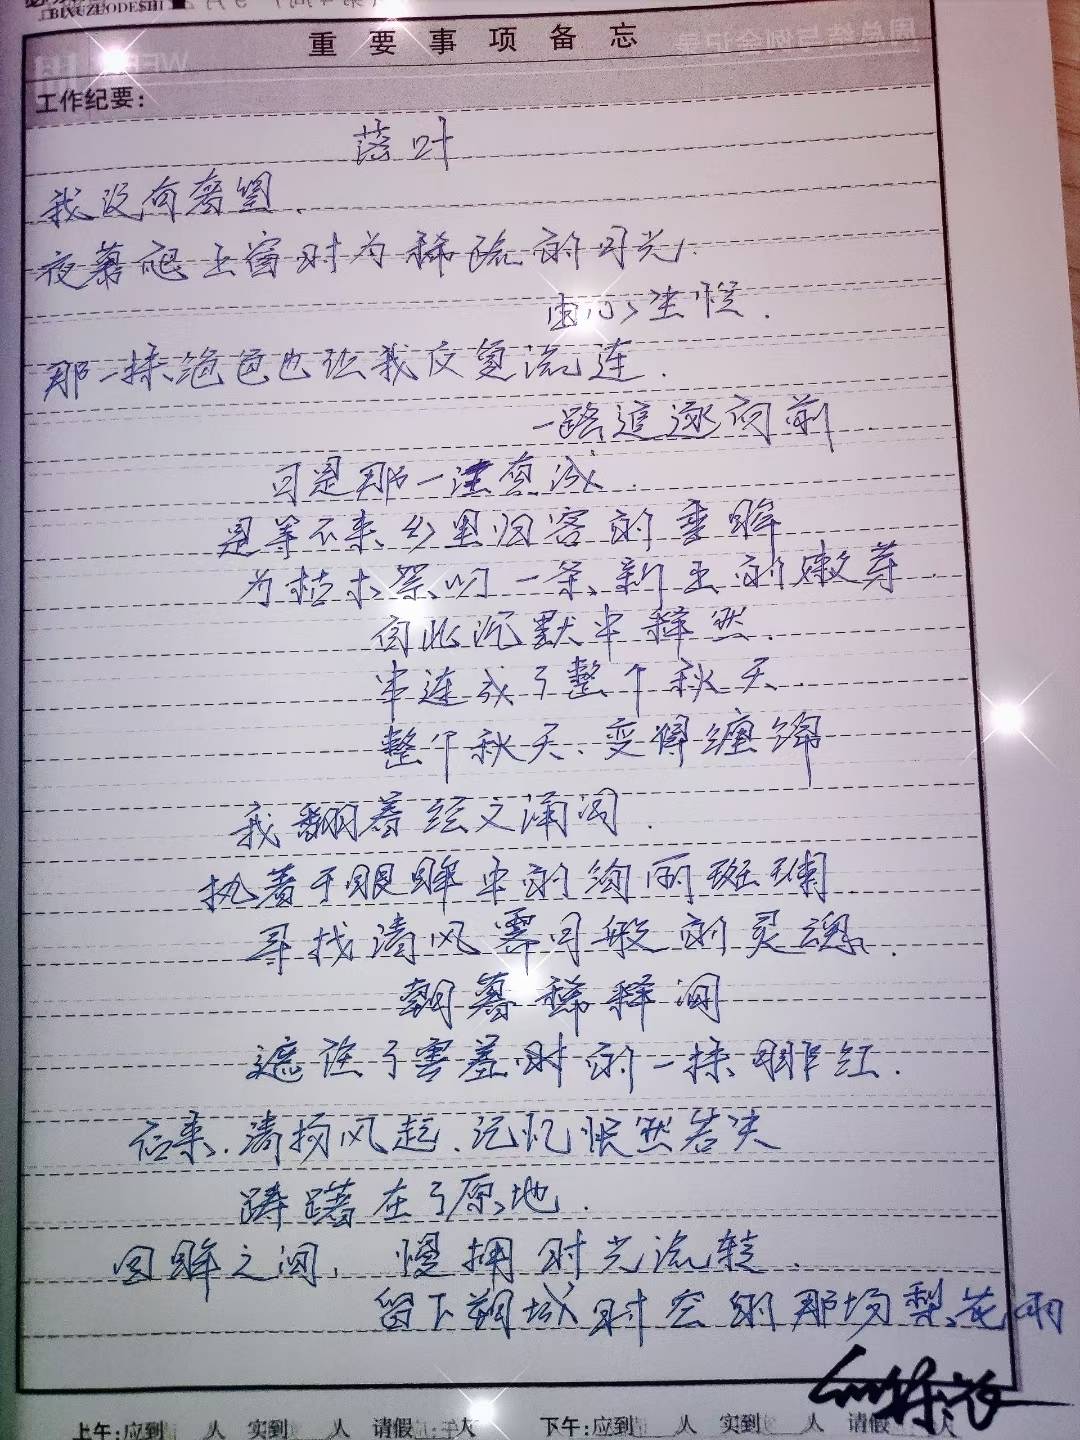 BIXUZUODESHI
重要事项备忘
周总结与例会记录
工作纪要：
落叶
我没有奢望.
夜幕爬上窗时为稀疏的月光,
由心生恨.
那一抹绝色也让我反复流连.
一路追逐向前.
可是那一注真诚.
是等不来乡里归客的垂眸
为枯木祭吻一条新生的嫩芽.
向此沉默中释然.
串连成了整个秋天.
整个秋天、变得缠绵
我翻着经文诵阅.
执着于眼眸中的绚丽斑斓.
寻找清风霁月般的灵魂.
朝暮稀释间
遮住了害羞时的一抹绯红.
后来.清扬风起.记忆怅然若失
踌躇在了原地.
回眸之间, 慢拥时光流转.
留下朔城时空的那场梨花雨
上午:应到 人 实到 人 请假 人
下午:应到 人 实到 人 请假 人